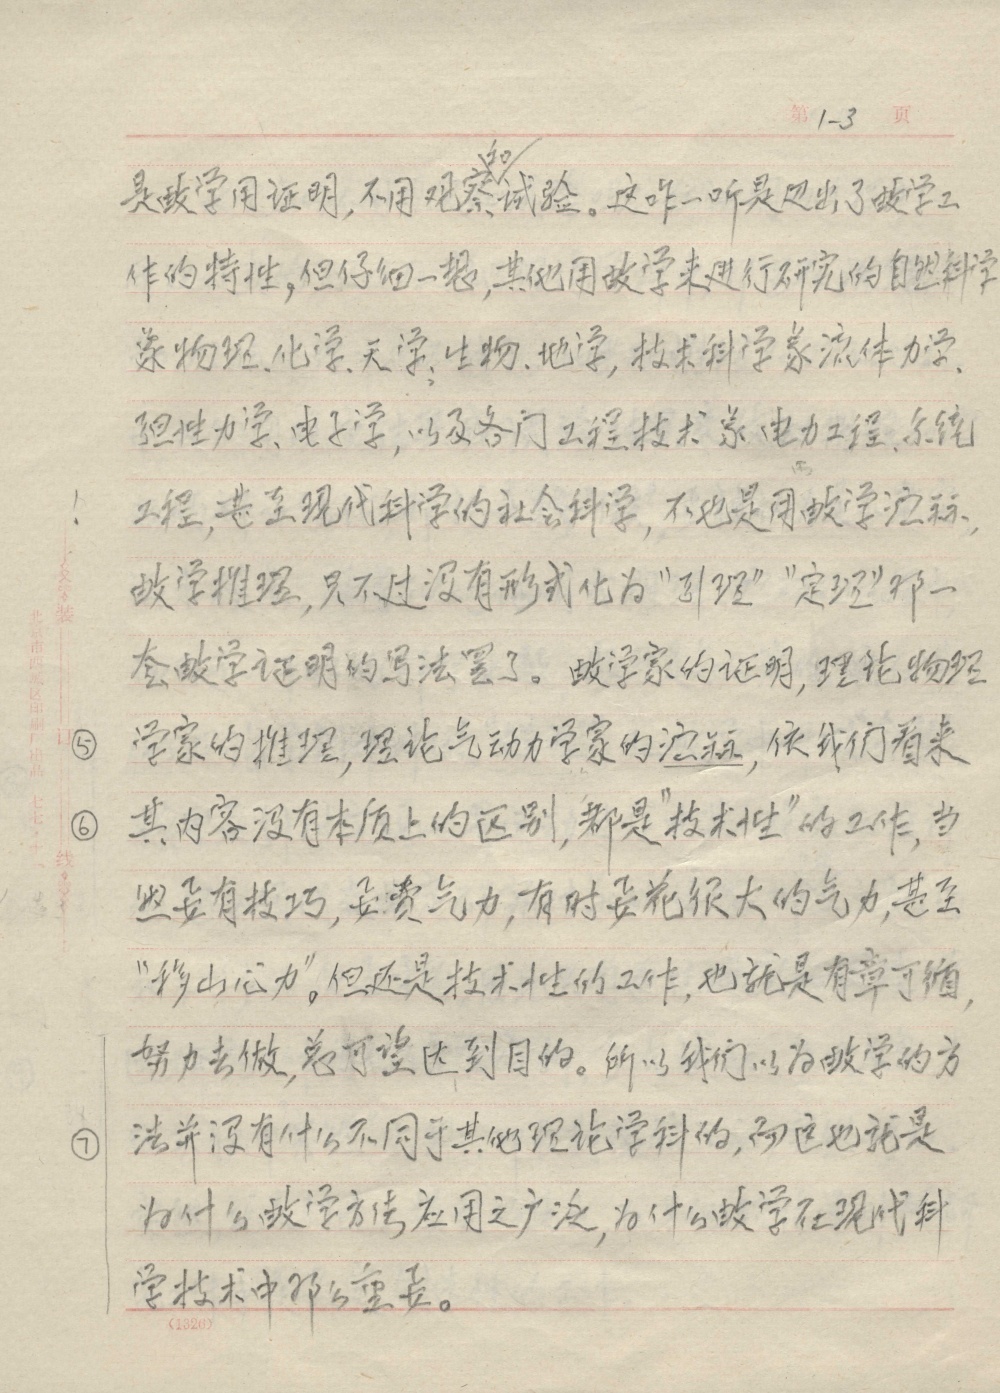 第 1-3 页
和
是数学用证明,不用观察试验。这咋一听是迟出了数学工
作的特性,但仔细一想,其他用数学来进行研究的自然科学
象物理、化学、天学、生物、地学,技术科学象流体力学、
弹性力学、电子学,以及各门工程技术象电力工程、系统
! 工程,甚至现代科学的社会科学,不也是用数学演算,
数学推理,只不过没有形式化为“引理”“定理”那一
套数学证明的写法罢了。数学家的证明,理论物理
⑤ 学家的推理,理论气动力学家的演算,依我们看来
⑥ 其内容没有本质上的区别,都是“技术性”的工作,当
然要有技巧,要费气力,有时要花很大的气力,甚至
“移山之力”。但还是技术性的工作,也就是有章可循,
努力去做,总可望达到目的。所以我们以为数学的方
⑦ 法并没有什么不同于其他理论学科的,而这也就是
为什么数学方法应用之广泛,为什么数学在现代科
学技术中那么重要。
(1326)
装
线